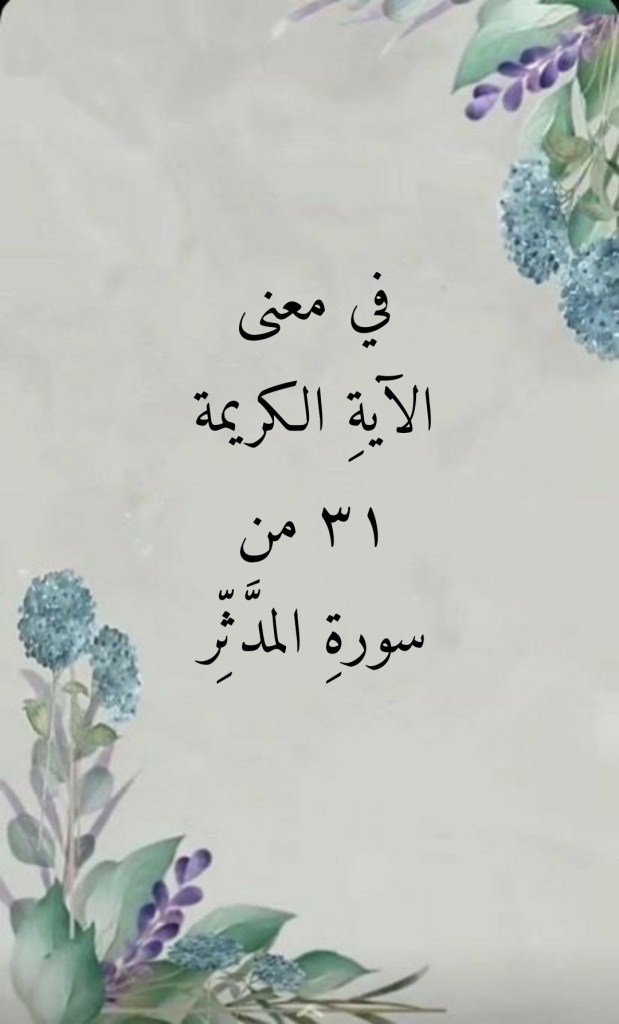 في معنى
الآيةِ الكريمة
٣١ من
سورةِ المدَّثِّرِ